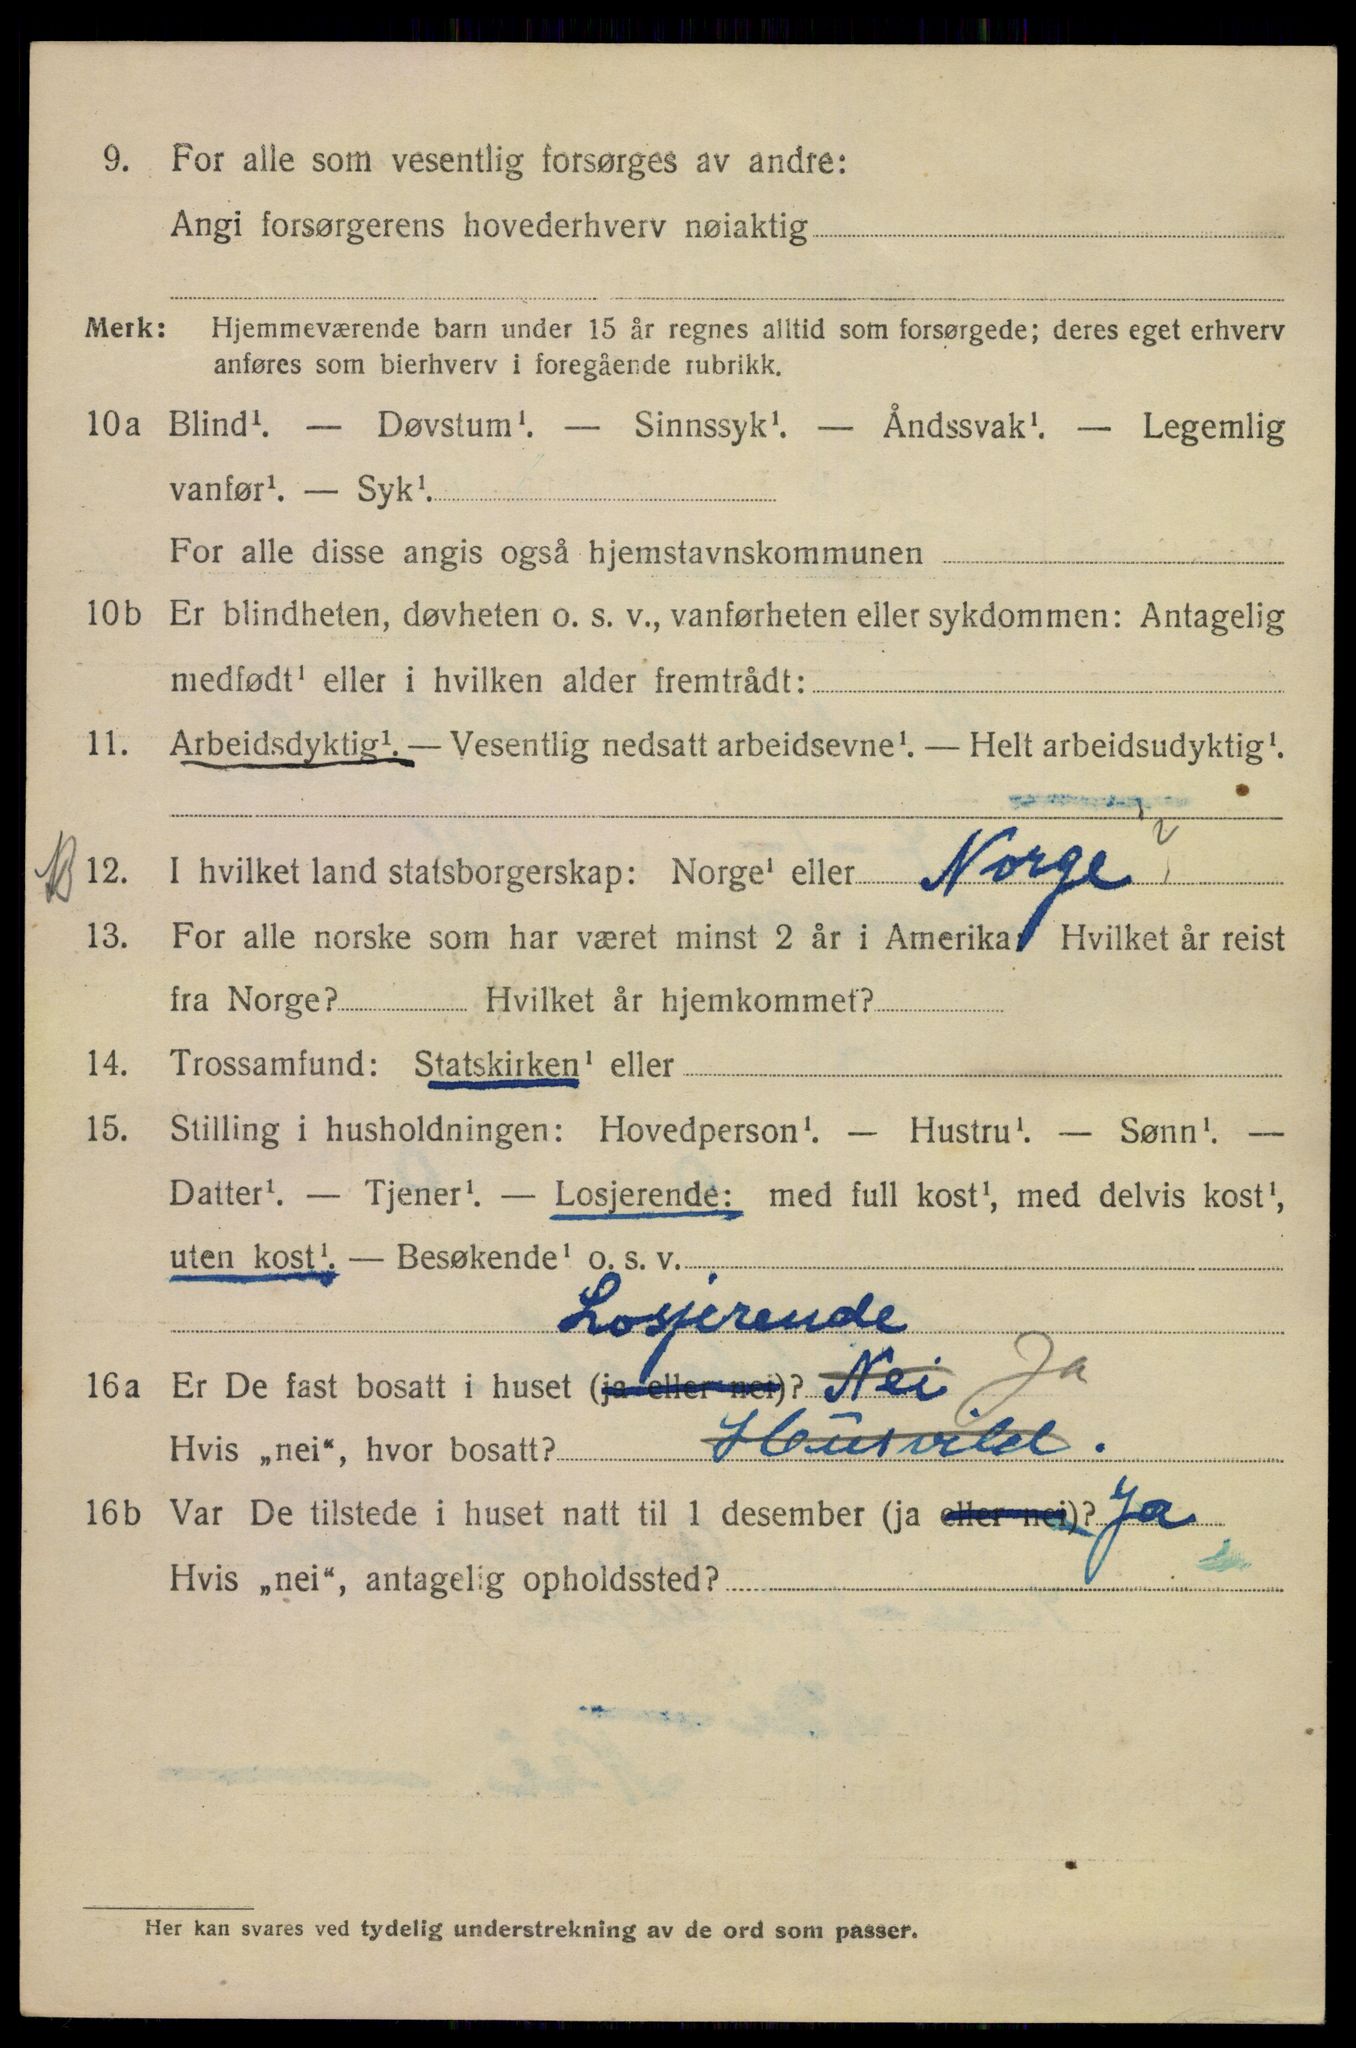 9. For alle som vesentlig forsørges av andre:
Angi forsørgerens hovederhverv nøiaktig
Merk: Hjemmeværende barn under 15 år regnes alltid som forsørgede; deres eget erhverv
anføres som bierhverv i foregående rubrikk.
10a Blind¹. — Døvstum¹. — Sinnssyk¹. — Åndssvak¹. — Legemlig
vanfør¹. — Syk¹.
For alle disse angis også hjemstavnskommunen
10b Er blindheten, døvheten o. s. v., vanførheten eller sykdommen: Antagelig
medfødt¹ eller i hvilken alder fremtrådt:
11. Arbeidsdyktig¹. — Vesentlig nedsatt arbeidsevne¹. — Helt arbeidsudyktig¹.
12. I hvilket land statsborgerskap: Norge¹ eller Norge
13. For alle norske som har været minst 2 år i Amerika: Hvilket år reist
fra Norge? Hvilket år hjemkommet?
14. Trossamfund: Statskirken¹ eller
15. Stilling i husholdningen: Hovedperson¹. — Hustru¹. — Sønn¹. —
Datter¹. — Tjener¹. — Losjerende: med full kost¹, med delvis kost¹,
uten kost¹. — Besøkende¹ o. s. v.
Losjerende
16a Er De fast bosatt i huset (ja eller nei)? Nei Ja
Hvis „nei“, hvor bosatt? Husvild.
16b Var De tilstede i huset natt til 1 desember (ja eller nei)? Ja
Hvis „nei“, antagelig opholdssted?
Her kan svares ved tydelig understrekning av de ord som passer.